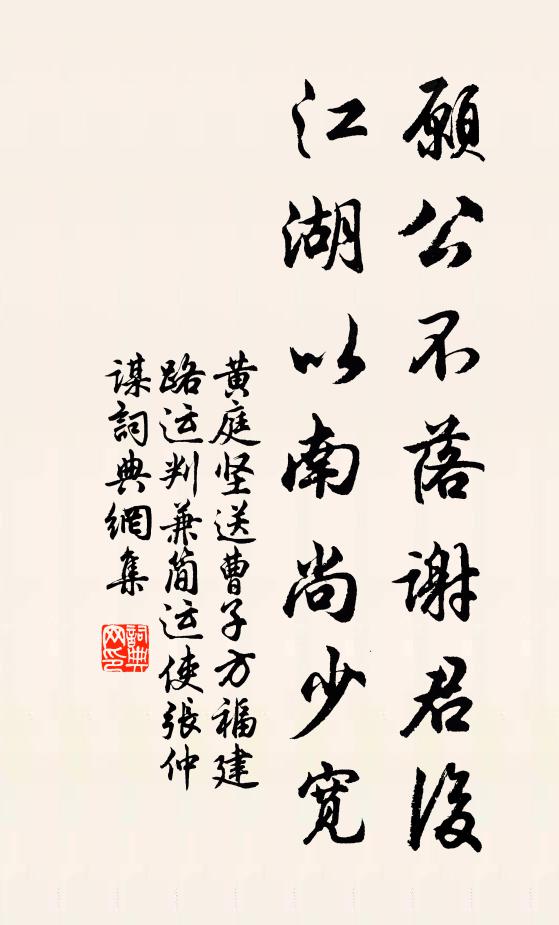 願公不落謝君後
江湖以南尚少寬
黄庭坚送曹子方福建
路运判兼简运使張仲
谋詞典網集
詞典
网印